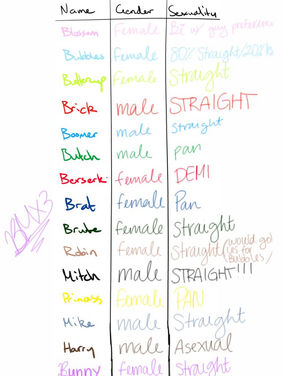 Name Gender Sexuality
Blossom Female Bi w/ guy preference
Bubbles Female 80% Straight/20%
Buttercup Female Straight
Brick male STRAIGHT
Boomer male Straight
Butch male pan
Berserk female DEMI
Brat female Pan
Brute female Straight
Robin female Straight (would go
for Bubbles)
Mitch male STRAIGHT!!!
Princess female PAN
Mike male Straight
Harry male Asexual
Bunny female Straight